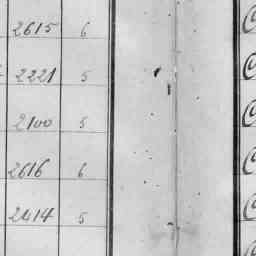 2615 6
2221 5
2100 5
2616 6
2414 5